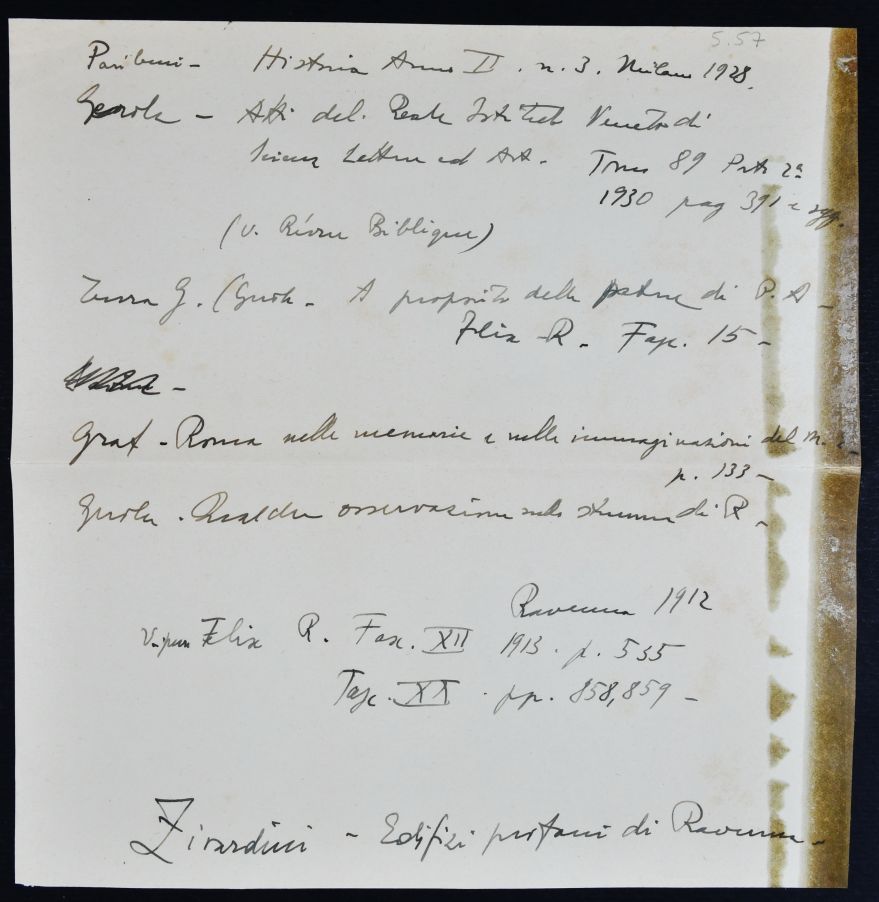 5.57
Paribeni - Historia Anno II. n. 3. Milano 1928.
Gerola - Atti del. Reale Istituto Veneto di
Scienze Lettere ed Arti - Tomo 89 Parte 2a
1930 pag 391 e sgg.
(v. Révue Biblique)
Zurra G. (Gerola - A proposito delle pietre di P. A -
Felix R. Fasc. 15 -
Graf - Roma nelle memorie e nelle immaginazioni del M. E.
p. 133 -
Gerola - Qualche osservazione sullo stemma di R -
Ravenna 1912
Felix R. Fasc. XII 1913. p. 535
Fasc. XX. pp. 858, 859 -
Zirardini - Edifizi profani di Ravenna -